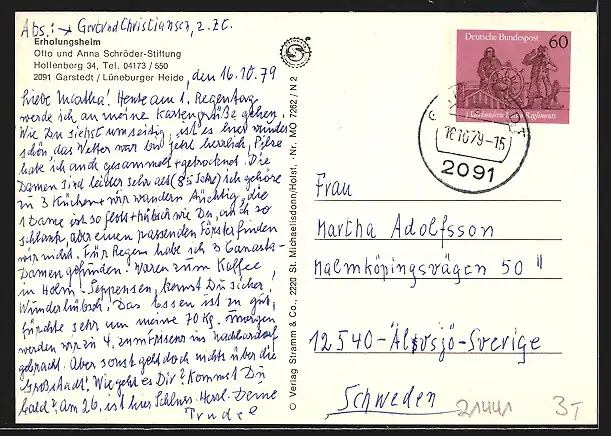 Abs.: → Gertrud Christiansen, z. Zt.
Erholungsheim
Otto und Anna Schröder-Stiftung
Hollenberg 34, Tel. 04173 / 550
2091 Garstedt / Lüneburger Heide, den 16.10.79
Liebe Martha! Heute am 1. Regentag
werde ich an meine Kartengrüße gehen.
Wie Du siehst umseitig, ist es hier wunder
schön, das Wetter war bis jetzt herrlich, Pilze
habe ich auch gesammelt + getrocknet. Die
Damen sind leider sehr alt (85 Jahre) ich gehöre
zu 3 Küchen + wir wandern tüchtig, die
1 Dame ist so flott + hübsch wie Du, auch so
schlank, aber einen passenden Förster finden
wir nicht. Für Regen habe ich 3 Canasta-
Damen gefunden. Waren zum Kaffee
in Holm-Seppensen, kennst Du sicher,
Wunderhübsch! Das Essen ist zu gut,
fürchte sehr um meine 70 Kg. Morgen
werden wir zu 4. zum Friseur ins Nachbardorf
gebracht. Aber sonst geht doch nichts über die
Großstadt! Wie geht es Dir? Kommst Du
bald? Am 26. ist hier Schluss. Herzl. Deine
Trudel
© Verlag Stramm & Co., 2220 St. Michaelisdonn/Holst. · Nr. MO 7282 / N 2
Deutsche Bundespost
60
16.10.79-15
2091
Frau
Martha Adolfsson
Malmköpingsvägen 50 "
12540-Älvsjö-Sverige
Schweden
21441
3T